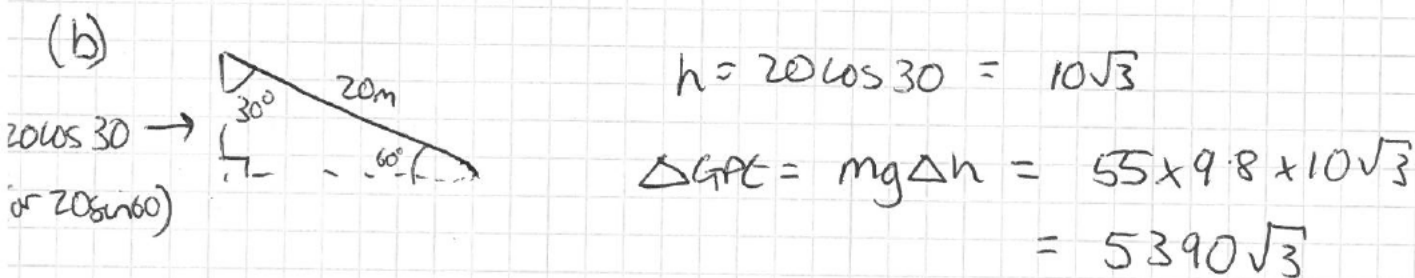 (b)
30°
20m
60°
20cos 30 →
or 20sin60)
h = 20cos 30 = 10√3
ΔGPE = mgΔh = 55×9.8×10√3
= 5390√3